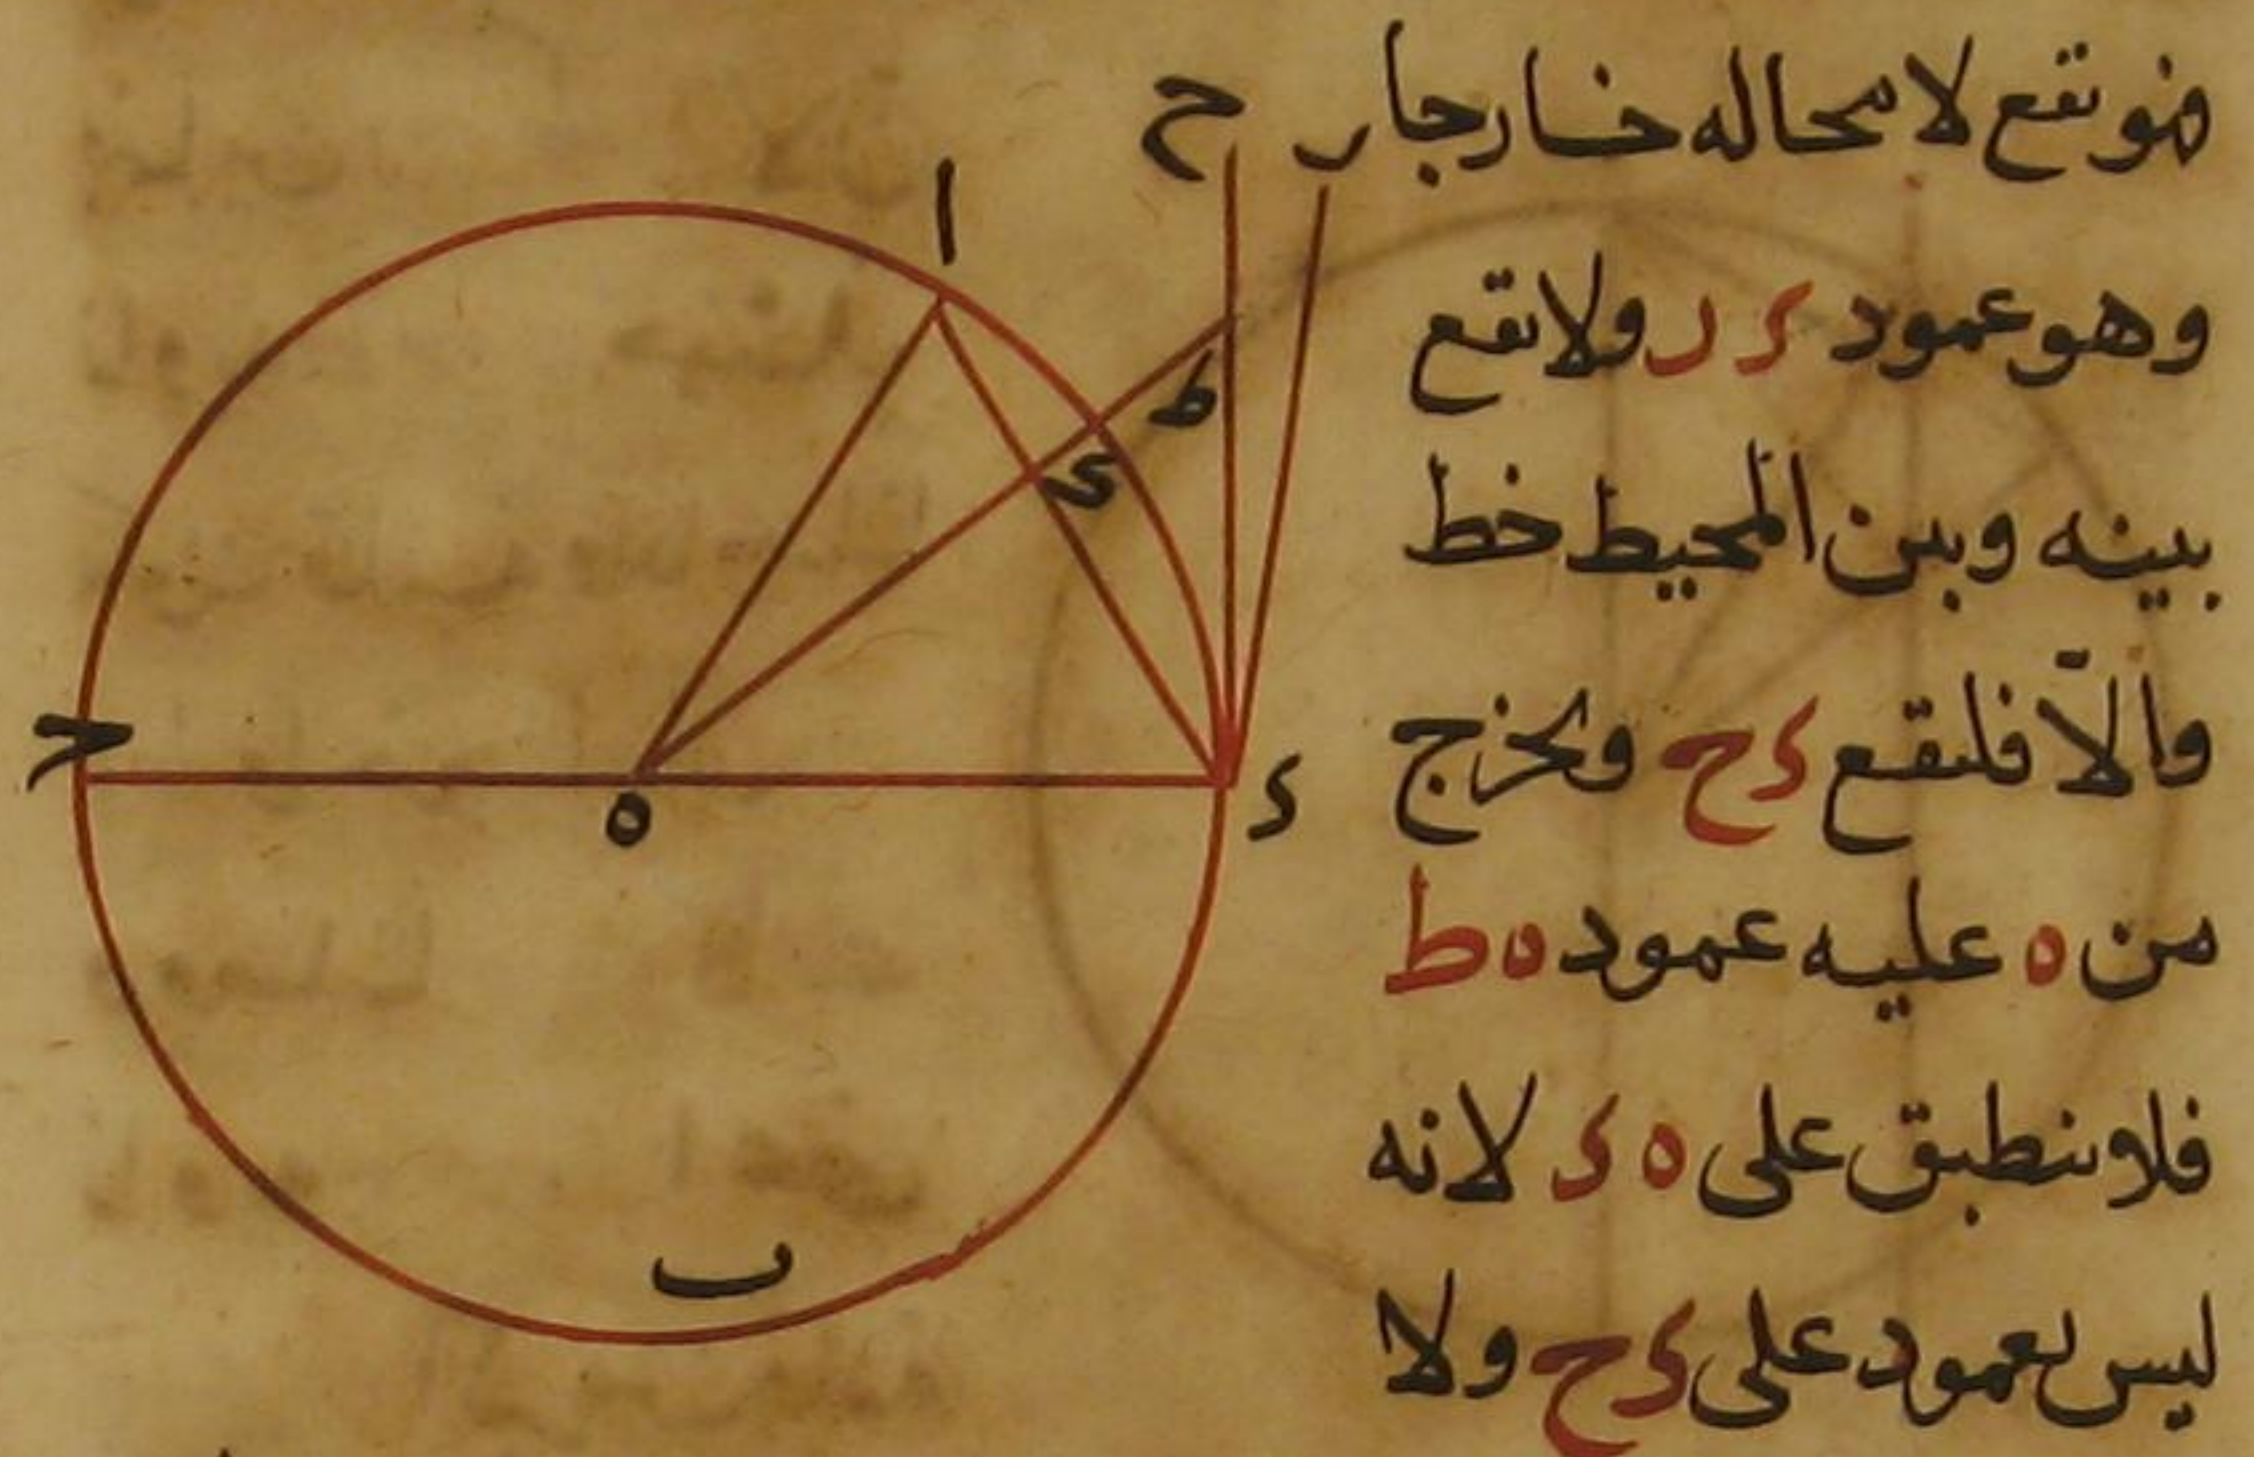 فهو يقع لا محاله خارجا
وهو عمود د ر ولا يقع
بينه وبين المحيط خط
والّا فليقع د ح ويخرج
من ه عليه عمود ه ط
فلا ينطبق على ه د لانه
ليس بعمود على د ح ولا
ح
ر
ا
ط
ى
ح
ه
د
ب